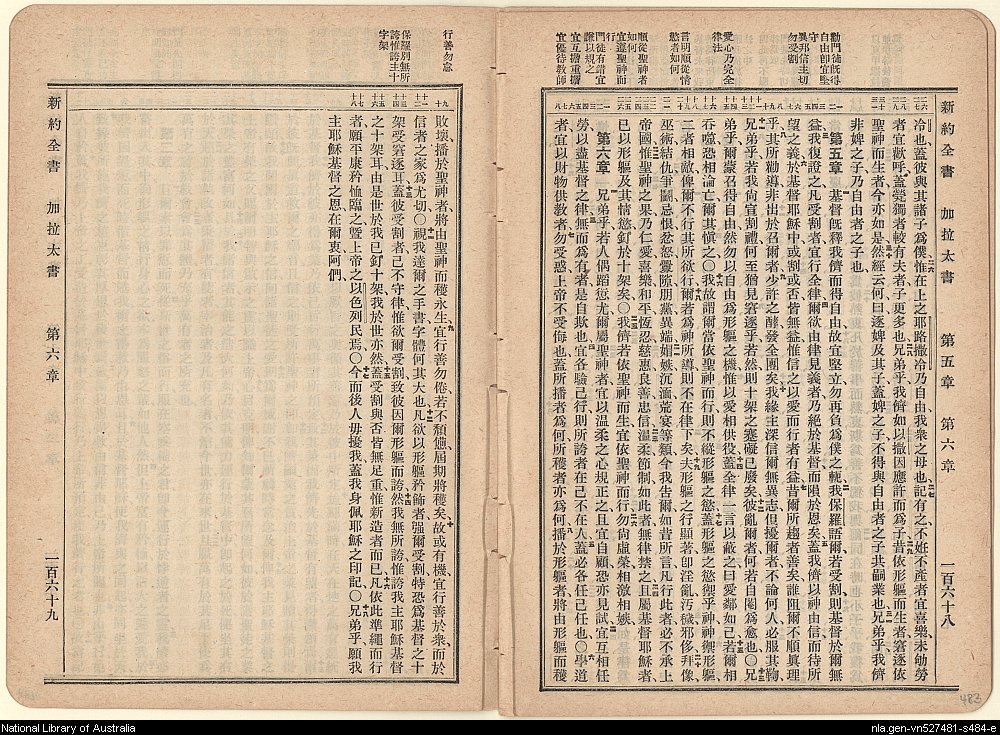 新約全書 加拉太書 第五章 第六章 一百六十八
勸門徒旣得
自由卽宜堅
守
異邦信主切
勿受割
愛心乃完全
律法
言明順從情
慾者如何
順從聖神者
如何
宜遵聖神而
行
門徒有錯宜
謙以規之
宜互擔重擔
宜優待教師
冷也蓋彼與其諸子爲僕惟在上之耶路撒冷乃自由我衆之母也記有之不姙不產者宜喜樂未劬勞
者宜歡呼蓋煢獨者較有夫者子更多也兄弟乎我儕如以撒因應許而爲子昔依形軀而生者窘逐依
聖神而生者今亦如是然經云何曰逐婢及其子蓋婢之子不得與自由者之子共嗣業也兄弟乎我儕
非婢之子乃自由者之子也
第五章 基督旣釋我儕而得自由故宜堅立勿再負爲僕之軛我保羅語爾若受割則基督於爾無
益我復證之凡受割者宜行全律爾欲由律見義者乃絕於基督而隕於恩矣蓋我儕以神由信而待所
望之義於基督耶穌中或割或否皆無益惟信之以愛而行者有益昔爾所趨者善矣誰阻爾不順眞理
乎其所勸導非出於召爾者少許之酵發全團矣我緣主深信爾無異志但擾爾者不論何人必服其鞫
兄弟乎若我尙宣割禮何至猶見窘逐乎若然則十字架之蹇礙已廢矣彼亂爾者何若自閹爲愈也〇兄
弟乎爾蒙召得自由然勿以自由爲形軀之機惟以愛相供役蓋全律一言以蔽之曰愛鄰如己若爾相
吞噬恐相淪亡爾其愼之〇我故謂爾當依聖神而行則不縱形軀之慾蓋形軀之慾禦乎神神禦形軀
二者相敵俾爾不行其所欲行爾若爲神所導則不在律下矣夫形軀之行顯著卽淫亂汚穢邪侈拜像
巫術結仇爭鬭忌恨忿怒釁隙朋黨異端媢嫉沉湎荒宴等類今我告爾如昔所言凡行此者必不承上
帝國惟聖神之果乃仁愛喜樂和平恆忍慈惠良善忠信溫柔節制如此者無律禁之且屬基督耶穌者
已以形軀及其情慾釘於十架矣〇我儕若依聖神而生宜依聖神而行勿尙虛榮相激相嫉
第六章 兄弟乎若人偶蹈愆尤爾屬聖神者宜以溫柔之心規正之且宜自顧恐亦見試宜互相任
勞以盡基督之律無而爲有者是自欺也宜各驗己行則所誇者在己不在人蓋必各任己任也〇學道
者宜以財物供敎者勿受惑上帝不受侮也蓋所播者爲何所穫者亦爲何播於形軀者將由形軀而穫
行善勿怠
保羅別無所
誇惟誇主十
字架
敗壞播於聖神者將由聖神而穫永生宜行善勿倦若不頹憊屆期將穫矣故或有機宜行善於衆而於
信者之家爲尤切〇視我達爾之手書字體何其大也凡欲以形軀矜飾者强爾受割特恐爲基督之十
架受窘逐耳蓋彼受割者己不守律惟欲爾受割致彼因爾形軀而誇然我無所誇惟誇我主耶穌基督
之十架耳由是世於我已釘十架我於世亦然蓋受割與否皆無足重惟新造者而已凡依此準繩而行
者願平康矜恤臨之曁上帝之以色列民焉〇今而後人毋擾我蓋我身佩耶穌之印記〇兄弟乎願我
主耶穌基督之恩在爾衷阿們
新約全書 加拉太書 第六章 一百六十九
483
National Library of Australia
nla.gen-vn527481-s484-e